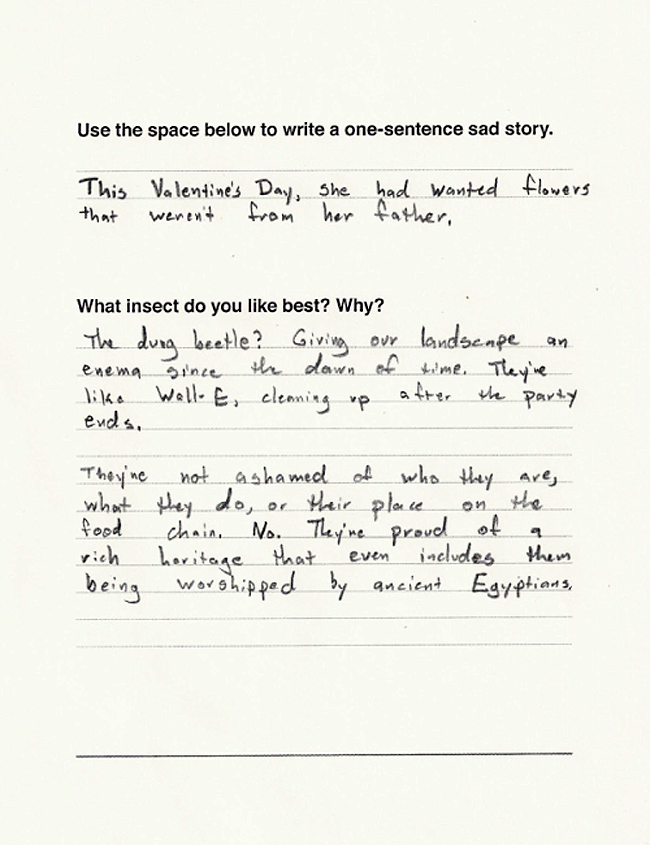 Use the space below to write a one-sentence sad story.
This Valentine's Day, she had wanted flowers
that weren't from her father.
What insect do you like best? Why?
The dung beetle? Giving our landscape an
enema since the dawn of time. They're
like Wall-E, cleaning up after the party
ends.
They're not ashamed of who they are,
what they do, or their place on the
food chain. No. They're proud of a
rich heritage that even includes them
being worshipped by ancient Egyptians.